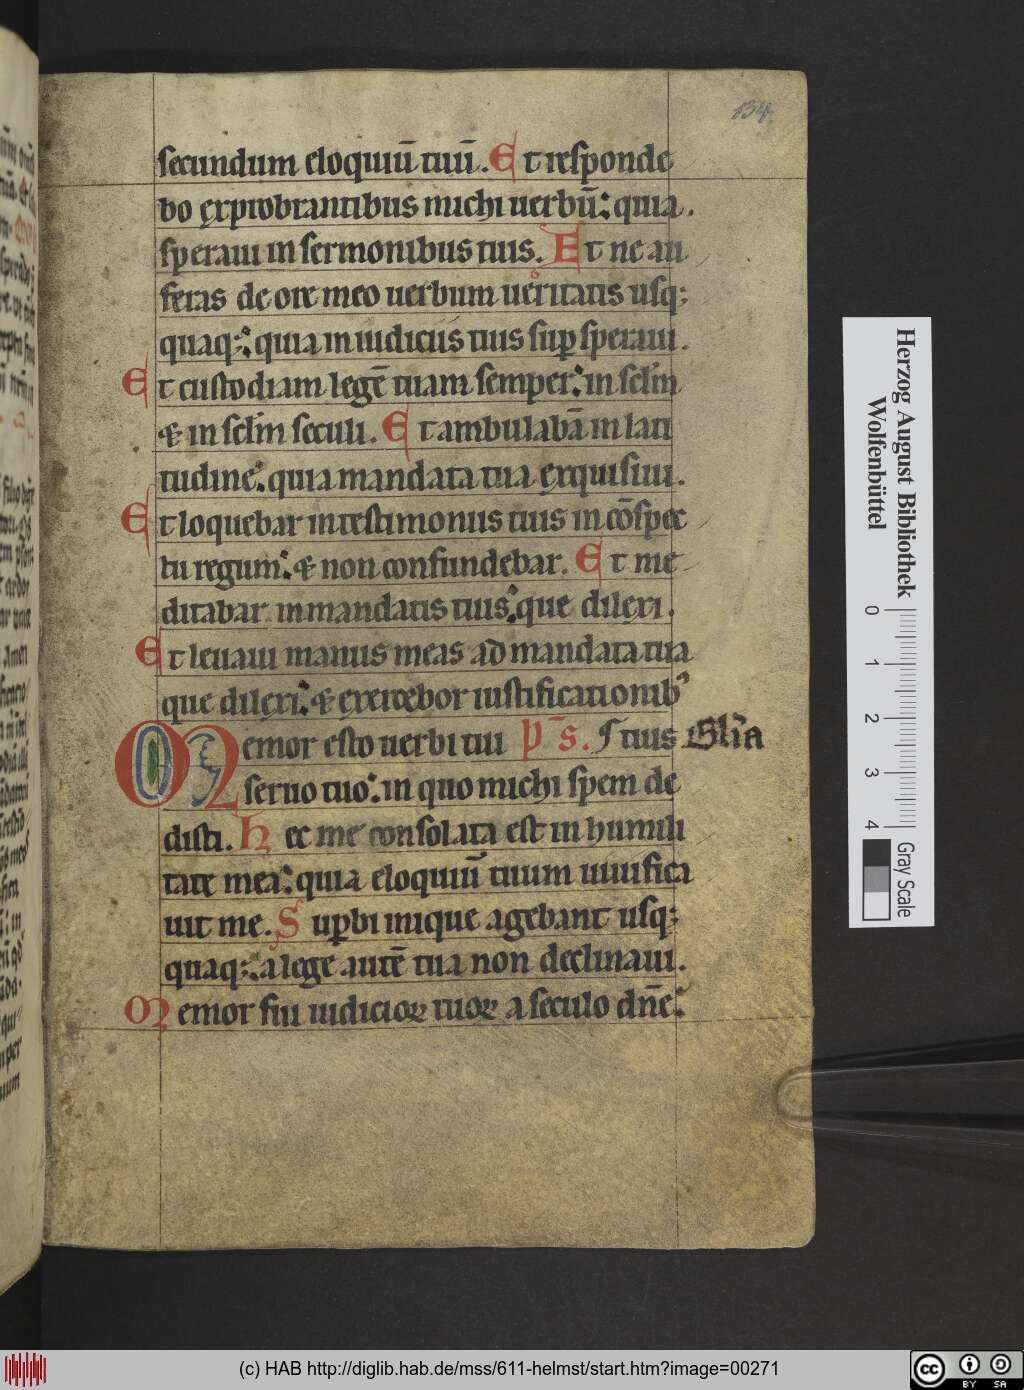 134.
secundum eloquiū tuū. Et responde
bo exprobrantibus michi uerbū: quia.
speraui in sermonibus tuis. Et ne au
feras de ore meo uerbum ueritatis usq;
quaq;: quia in iudiciis tuis sup speraui.
Et custodiam legē tuam semper: in sclm
& in sclm seculi. Et ambulabā in lati
tudine: quia mandata tua exquisiui.
Et loquebar in testimoniis tuis in cōspec
tu regum: & non confundebar. Et me
ditabar in mandatis tuis: que dilexi.
Et leuaui manus meas ad mandata tua
que dilexi: & exercebor iustificationib9
Memor esto uerbi tui ps. tuis Glīa
seruo tuo: in quo michi spem de
disti. Hec me consolata est in humili
tate mea: quia eloquiū tuum uiuifica
uit me. Supbi inique agebant usq;
quaq;: a lege autē tua non declinaui.
Memor fui iudicioꝝ tuoꝝ a seculo dn̄e:
Herzog August Bibliothek
Wolfenbüttel
0 1 2 3 4
Gray Scale
(c) HAB http://diglib.hab.de/mss/611-helmst/start.htm?image=00271
cc BY SA